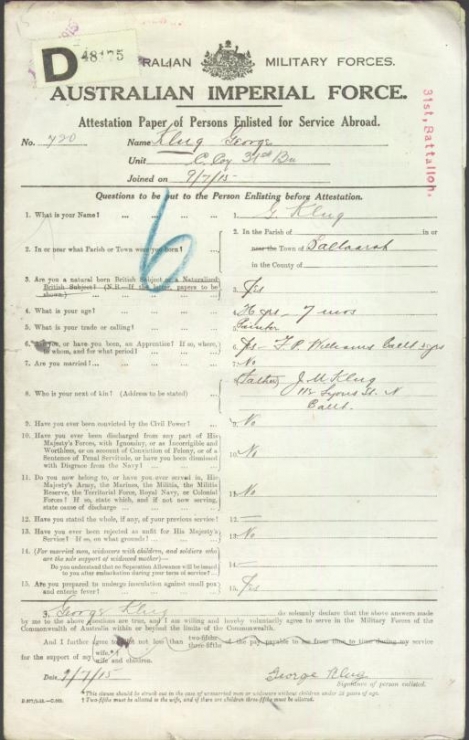 D
48175
RALIAN MILITARY FORCES.
AUSTRALIAN IMPERIAL FORCE.
Attestation Paper of Persons Enlisted for Service Abroad.
31st, Battalion.
No. 720 Name Klug George
Unit C. Coy 31st Bn
Joined on 9/7/15
Questions to be put to the Person Enlisting before Attestation.
6
1. What is your Name? ... 1. G. Klug
2. In or near what Parish or Town were you born? ... 2. In the Parish of in or
near the Town of Ballaarat
in the County of
3. Are you a natural born British Subject or a Naturalized
British Subject? (N.B.—If the latter, papers to be
shown.) 3. Yes
4. What is your age? ... 4. 7 mos
5. What is your trade or calling? ... 5. Painter
6. Are you, or have you been, an Apprentice? If so, where,
to whom, and for what period? ... 6. Yes Williams
7. Are you married? ... 7. No
8. Who is your next of kin? (Address to be stated) ... 8. (Father) J. M. Klug
Lyons St. N
Ballt.
9. Have you ever been convicted by the Civil Power? ... 9. No
10. Have you ever been discharged from any part of His
Majesty's Forces, with Ignominy, or as Incorrigible and
Worthless, or on account of Conviction of Felony, or of a
Sentence of Penal Servitude, or have you been dismissed
with Disgrace from the Navy? ... 10. No
11. Do you now belong to, or have you ever served in, His
Majesty's Army, the Marines, the Militia, the Militia
Reserve, the Territorial Force, Royal Navy, or Colonial
Forces? If so, state which, and if not now serving,
state cause of discharge ... 11. No
12. Have you stated the whole, if any, of your previous service? 12. —
13. Have you ever been rejected as unfit for His Majesty's
Service? If so, on what grounds? ... 13. No
14. (For married men, widowers with children, and soldiers who
are the sole support of widowed mother)—
Do you understand that no Separation Allowance will be issued
to you after embarkation during your term of service? ... 14. —
15. Are you prepared to undergo inoculation against small pox
and enteric fever? ... 15. Yes
George Klug do solemnly declare that the above answers made
by me to the above questions are true, and I am willing and hereby voluntarily agree to serve in the Military Forces of the
Commonwealth of Australia within or beyond the limits of the Commonwealth.
And I further agree to allot not less than two-fifths
three-fifths of the pay payable to me from time to time during my service
for the support of my wife.
wife and children.
Date 9/7/15 George Klug
Signature of person enlisted.
*This clause should be struck out in the case of unmarried men or widowers without children under 18 years of age.
† Two-fifths must be allotted to the wife, and if there are children three-fifths must be allotted.